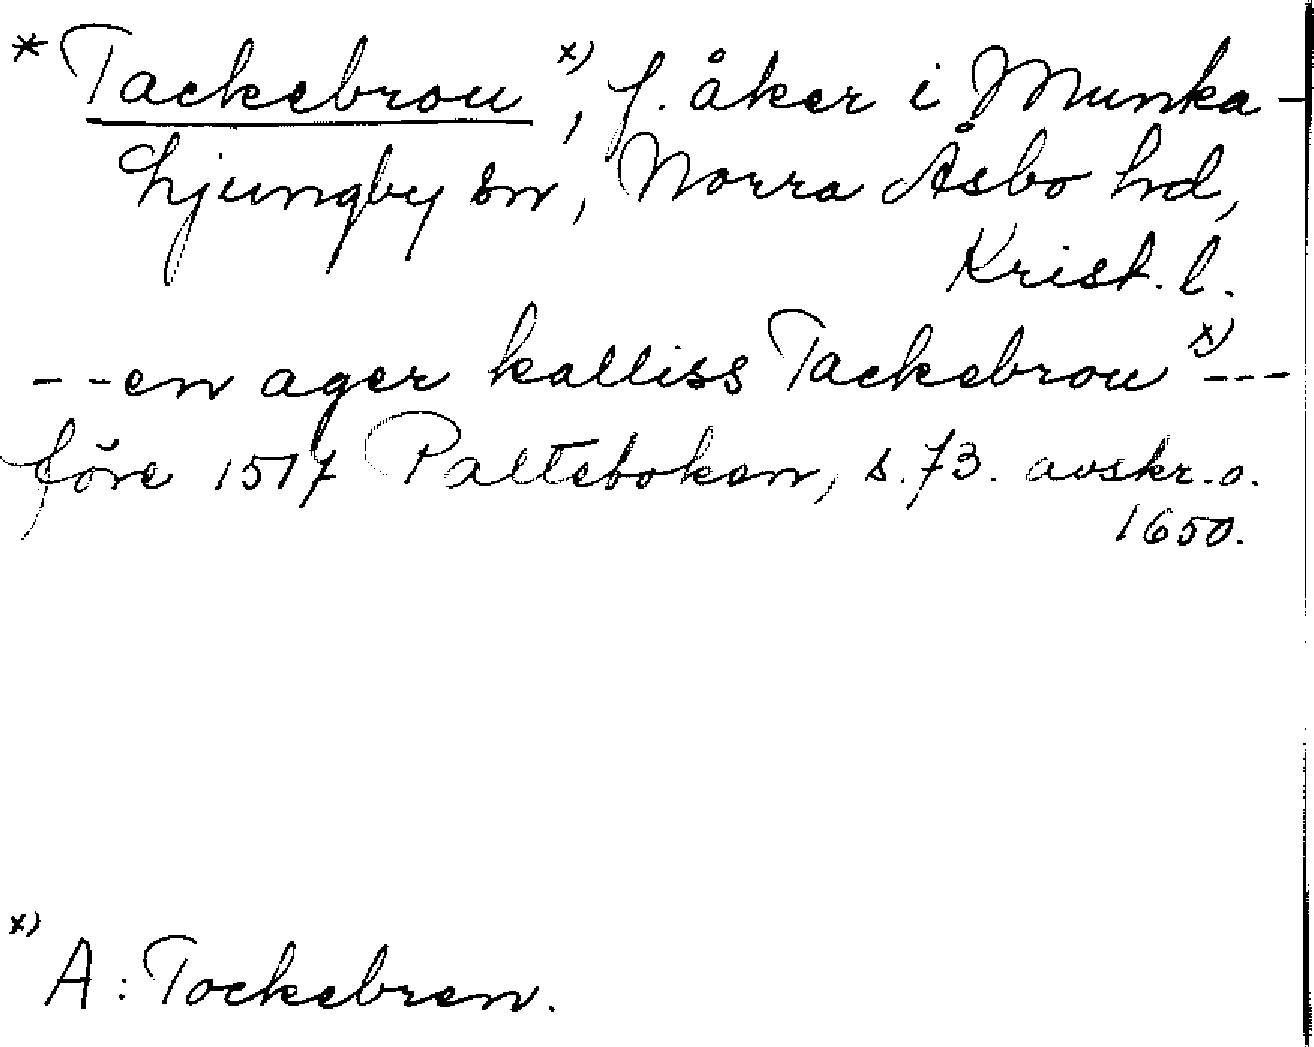 * Tackebrou x), f. åker i Munka-
Ljungby sn, Norra Åsbo hd,
Krist. l.
--en ager kalliss Tackebrou x) ---
före 1517 Palteboken, s. 73. avskr. o.
1650.
x) A: Tockebren.